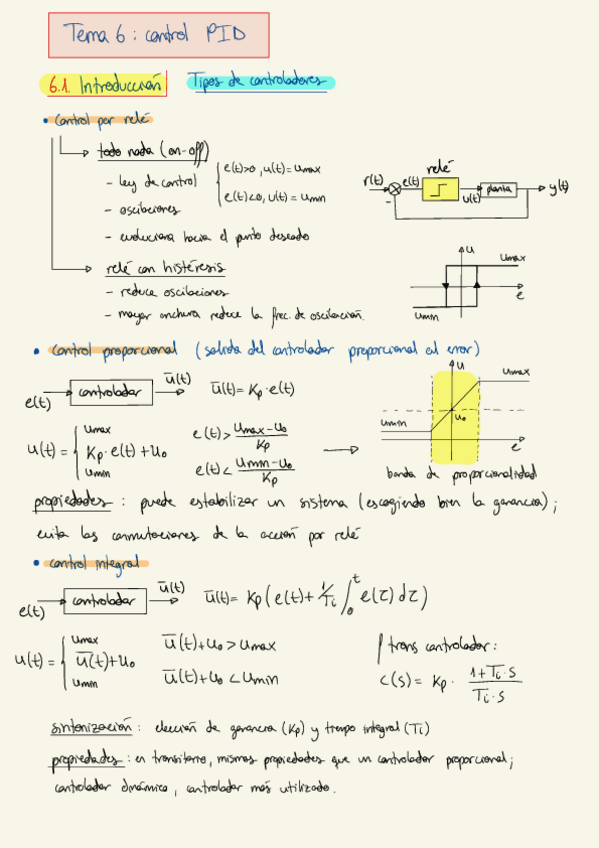 Tema 6: control PID
6.1. Introducción Tipos de controladores
• Control por relé
todo nada (on-off)
- ley de control
e(t)>0, u(t)=umax
e(t)<0, u(t)=umin
- oscilaciones
- evoluciona hacia el punto deseado
relé
r(t) e(t) u(t) planta y(t)
-
relé con histéresis
- reduce oscilaciones
- mayor anchura reduce la frec. de oscilación.
u
umax
e
umin
• control proporcional (salida del controlador proporcional al error)
e(t) controlador ū(t) ū(t)= Kp·e(t)
u(t) = { umax
Kp·e(t)+u₀
umin
e(t)> (umax-u₀)/Kp
e(t)< (umin-u₀)/Kp
u
umax
umin
u₀
e
banda de proporcionalidad
propiedades: puede estabilizar un sistema (escogiendo bien la ganancia);
evita las conmutaciones de la acción por relé
• control integral
e(t) controlador ū(t) ū(t)= Kp(e(t)+ 1/Ti ∫₀ᵗ e(τ)dτ)
u(t) = { umax
ū(t)+u₀
umin
ū(t)+u₀ > umax
ū(t)+u₀ < umin
f trans controlador:
C(s) = Kp · (1+Ti·s)/(Ti·s)
sintonización: elección de ganancia (Kp) y tiempo integral (Ti)
propiedades: en transitorio, mismas propiedades que un controlador proporcional;
controlador dinámico, controlador más utilizado.